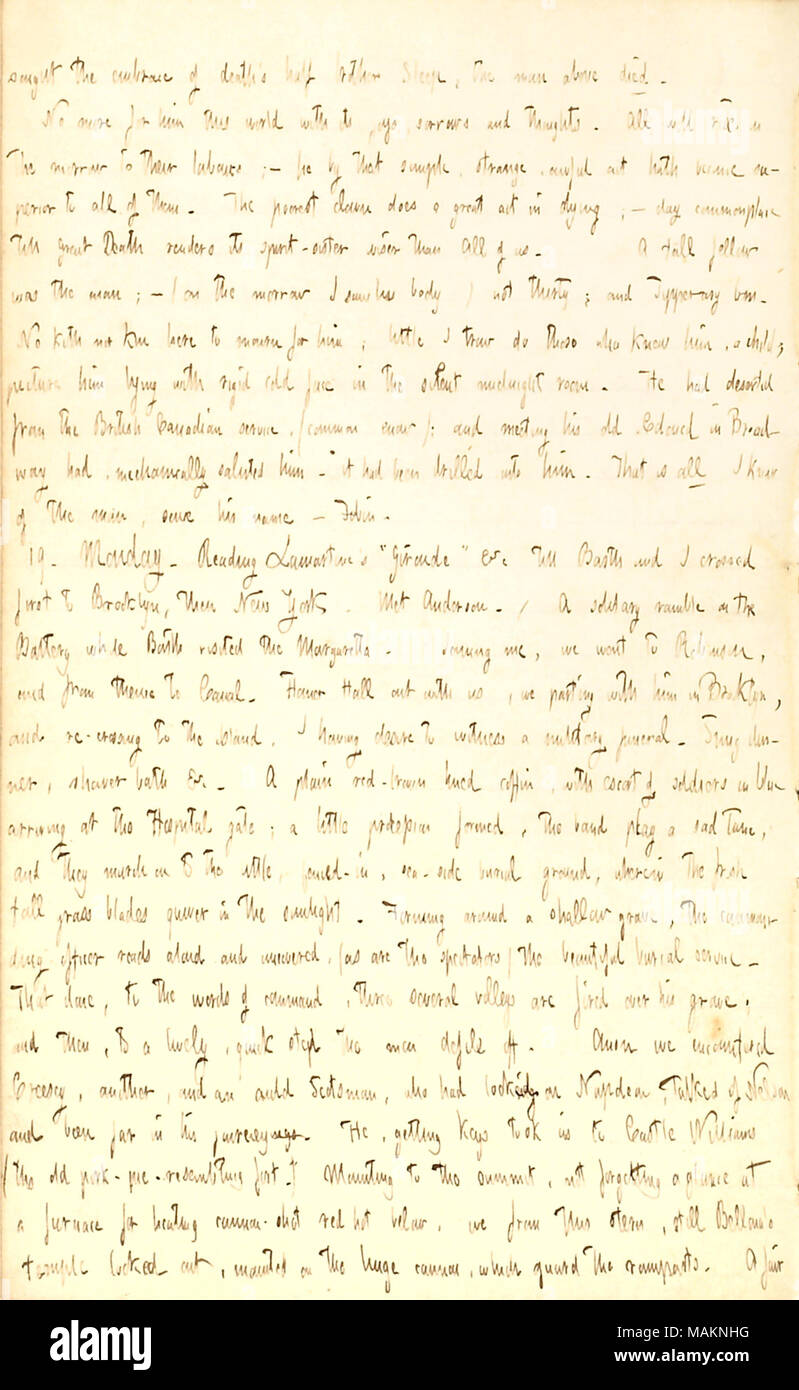 sought the embrace of death's half brother Sleep, the man above died.
No more for him this world with its joys, sorrows and thoughts. All will rise on
the morrow to their labours ;— he by that simple, strange, awful act hath become su-
perior to all of them. The poorest clown does a great act in dying ;— clay commonplace
till great Death renders its spirit-sister wiser than all of us. A tall fellow
was the man ; — (on the morrow I saw his body) not thirty ; and Tipperary born.
No kith nor kin here to mourn for him ; little I trow do those who knew him, a child,
picture him lying with rigid cold face in the silent midnight room. He had deserted
from the British Canadian service, (common enow); and meeting his old Colonel in Broad-
way had mechanically saluted him — it had been drilled into him. That is all I know
of the man, save his name — Tobin.
19. Monday. Reading Lamartine's "Gironde" &c till Barth and I crossed
first to Brooklyn, then New York. Met Anderson. / A solitary ramble on the
Battery while Barth visited the Margaretta. Joining me, we went to Robinson,
and from thence to Canal. Honor Hall out with us, we parting with him in
and re-crossing to the island, I having desire to witness a military funeral. Snug din-
ner, shower bath &c. A plain red-brown hued coffin, with escort of soldiers in blue
arriving at the Hospital gate ; a little procession formed, the band play a sad tune,
and they march on to the little, fenced-in, sea-side burial ground, wherein the
tall grass blades quiver in the sunlight. Forming around a shallow grave, the comman-
ding officer reads aloud and uncovered, (as are the spectators) the beautiful burial service.
That done, to the words of command, three several volleys are fired over his grave,
and then, to a lively, quick step the men defile off. Anon we encountered
Creecy, another, and an auld Scotsman, who had looked on Napoleon, talked of Nelson
and been far in his journeyings. He, getting keys took us to Castle Williams
(the old pork-pie-resembling fort.) Mounting to the summit, not forgetting a glance at
a furnace for heating cannon-shot red hot below, we from this stern, still Bellona's
temple looked out, mounted on the huge cannon, which guard the ramparts. A fair
alamy
Image ID: MAKNHG
www.alamy.com